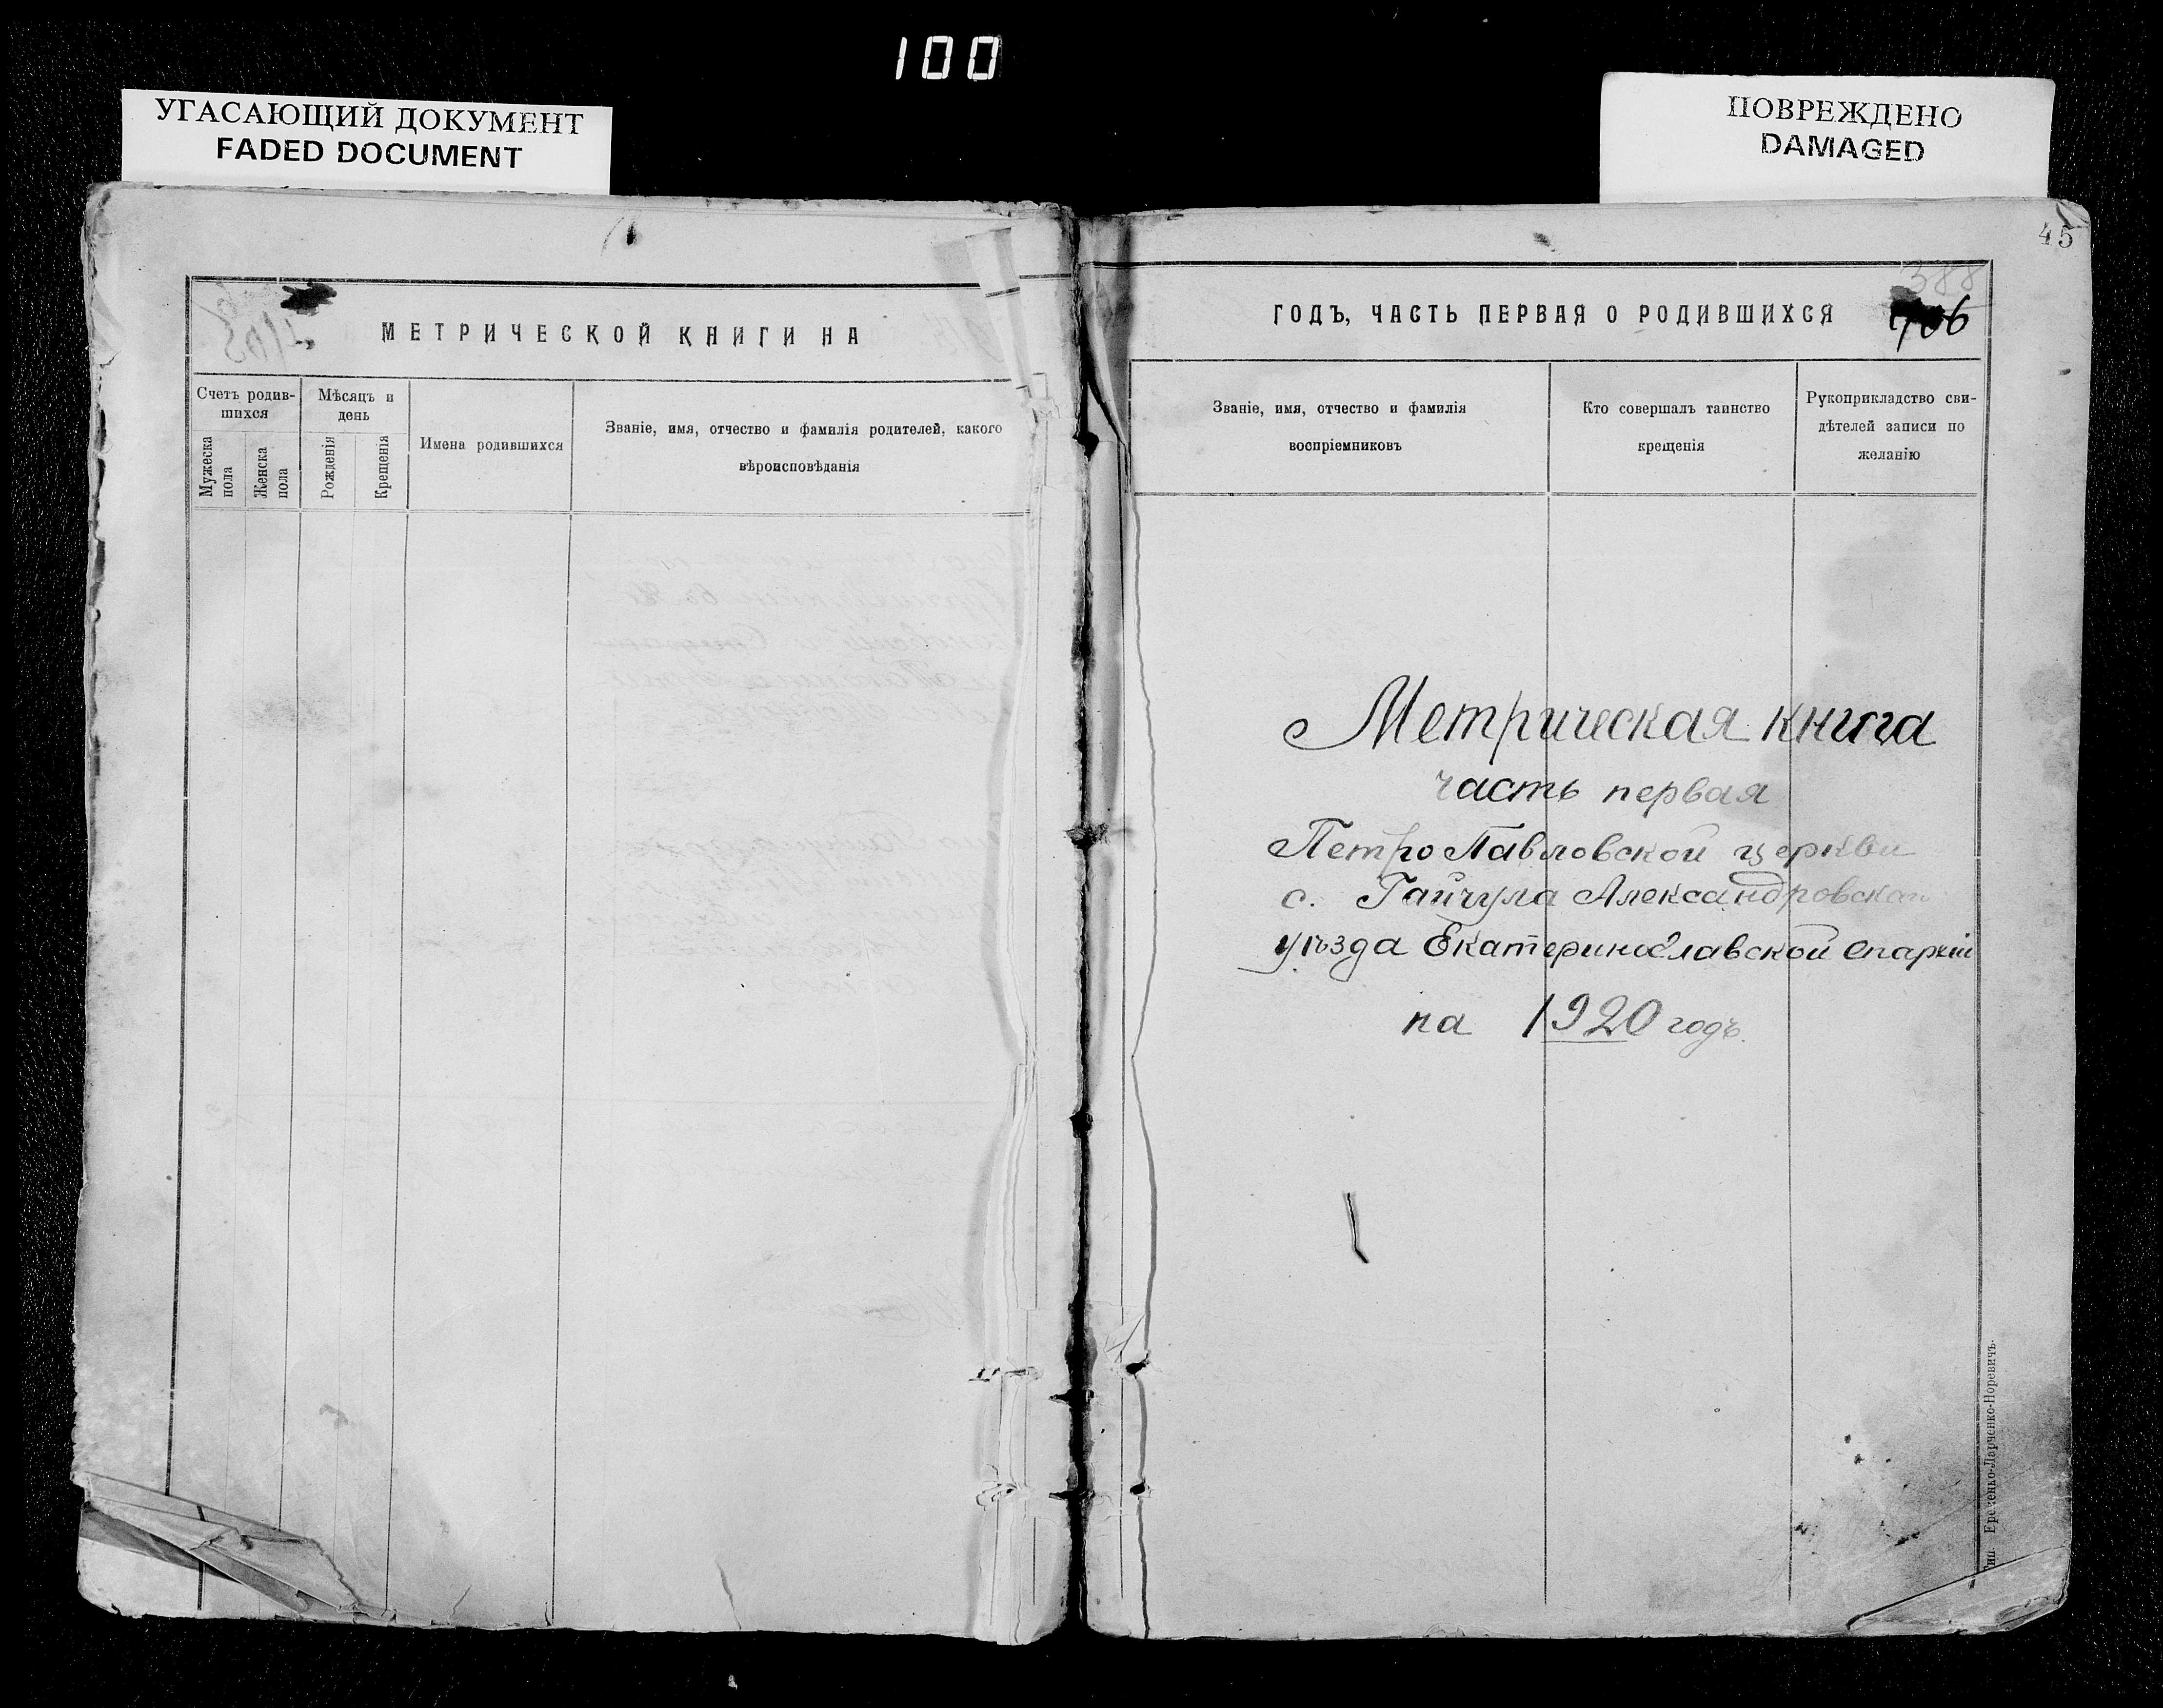 100
УГАСАЮЩИЙ ДОКУМЕНТ
FADED DOCUMENT
ПОВРЕЖДЕНО
DAMAGED
МЕТРИЧЕСКОЙ КНИГИ НА
Счетъ родив-
шихся
Мужеска
пола
Женска
пола
Мѣсяцъ и
день
Рожденія
Крещенія
Имена родившихся
Званіе, имя, отчество и фамилія родителей, какого
вѣроисповѣданія
45
388
ГОДЪ, ЧАСТЬ ПЕРВАЯ О РОДИВШИХСЯ
706
Званіе, имя, отчество и фамилія
воспріемниковъ
Кто совершалъ таинство
крещенія
Рукоприкладство сви-
дѣтелей записи по
желанію
Метрическая книга
часть первая
Петро Павловской церкви
с. Гайчула Александровскаго
уѣзда Екатеринославской епархіи
на 1920 годъ.
Тип. Еременко-Ларченко-Норевичъ.